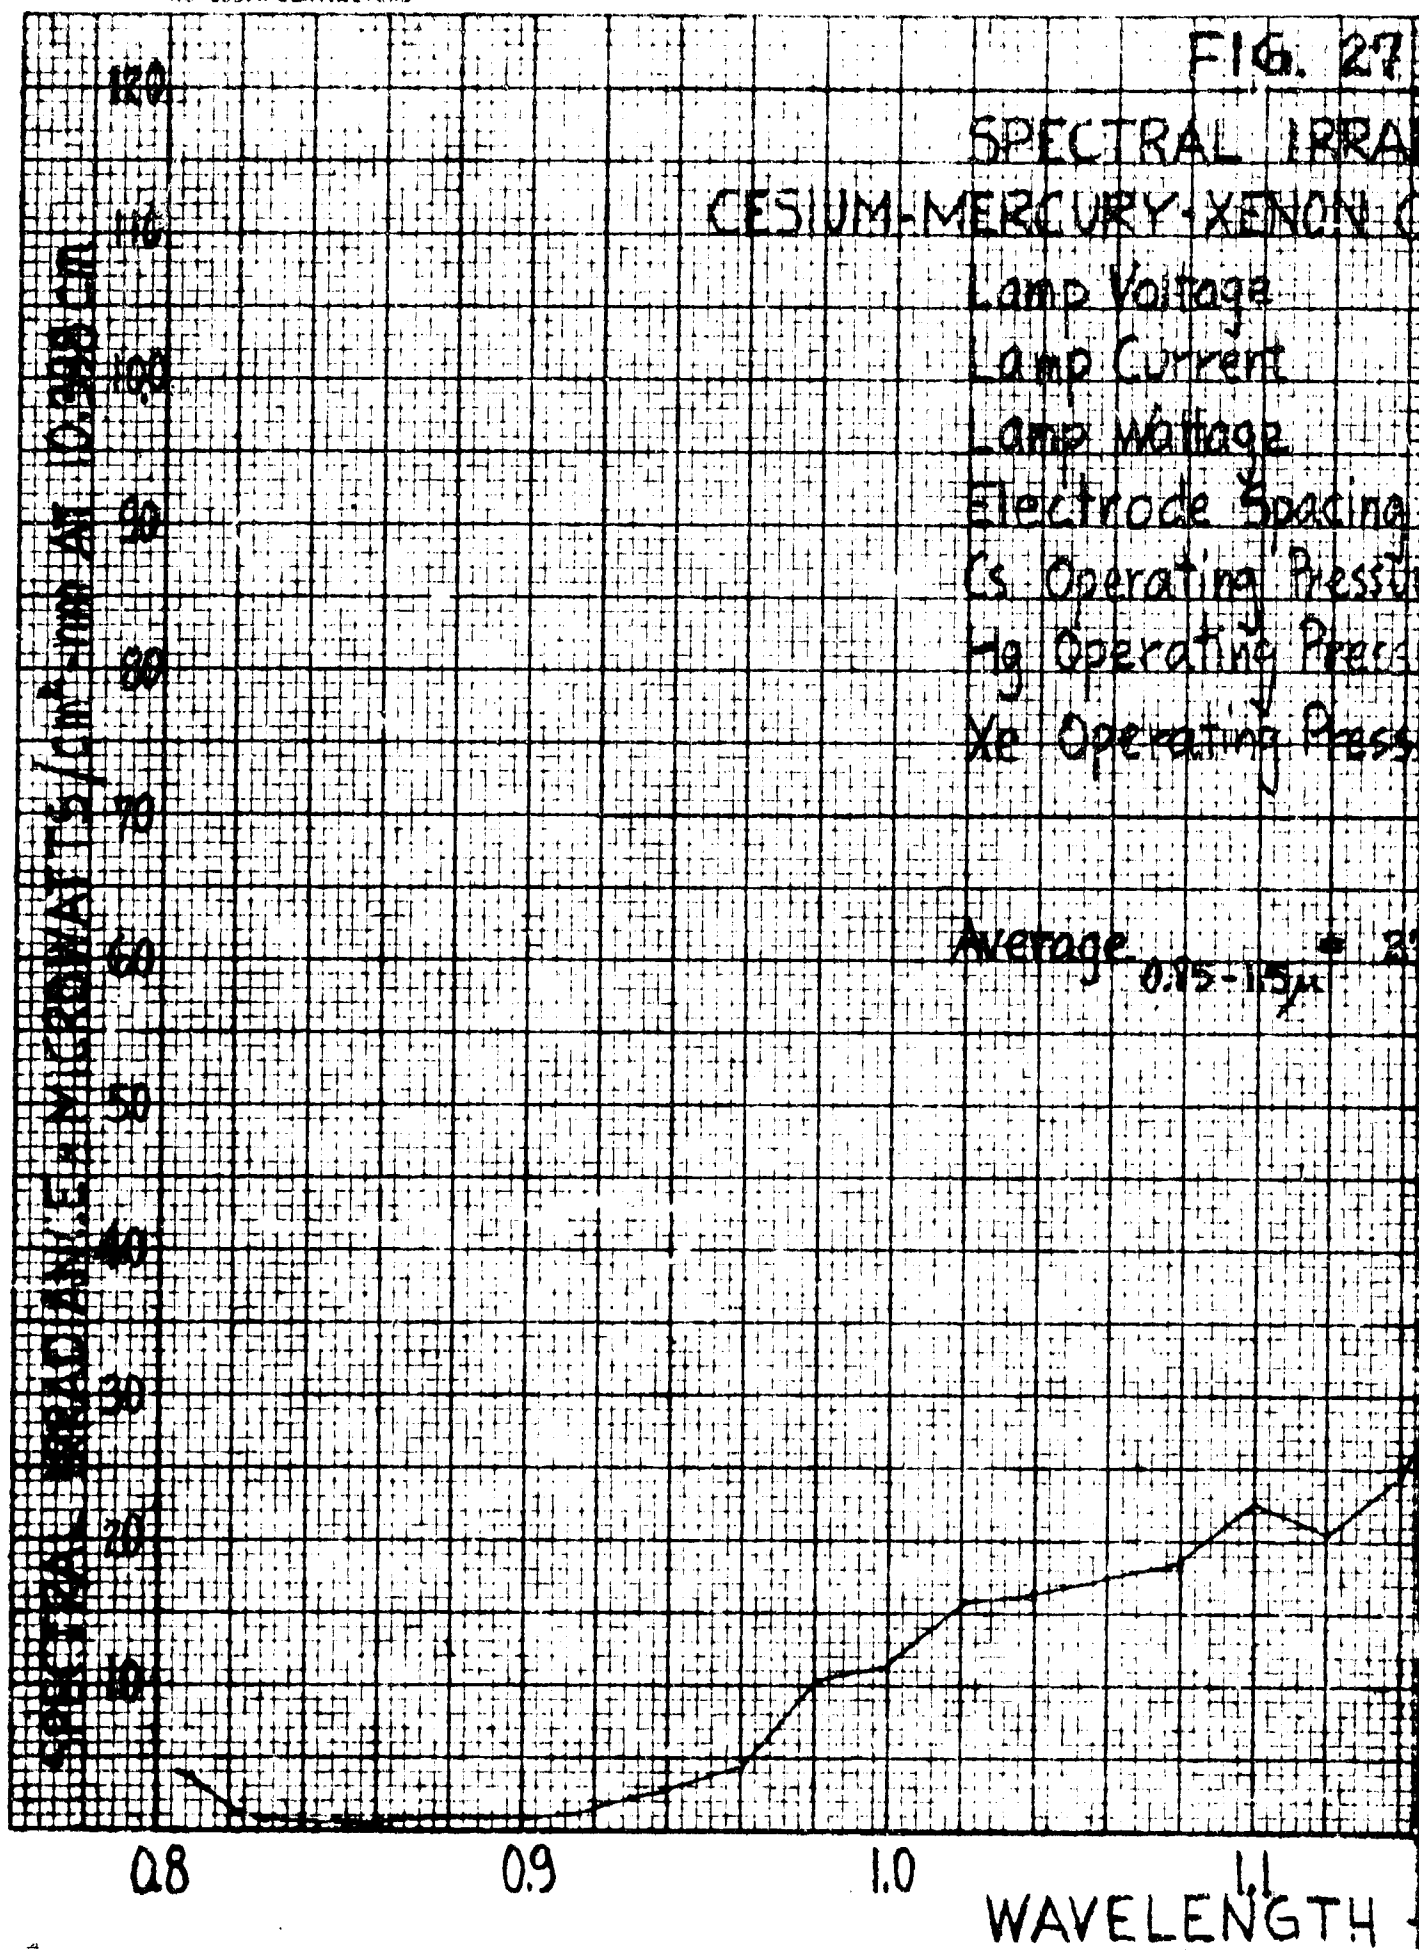 FIG. 27
SPECTRAL IRRA
CESIUM-MERCURY-XENON C
Lamp Voltage
Lamp Current
Lamp Wattage
Electrode Spacing
Cs Operating Pressu
Hg Operating Press
Xe Operating Press
Average 0.85-1.5μ = 3
SPECTRAL IRRADIANCE - MICROWATTS/cm²-nm AT 10.398 cm
120
110
100
90
80
70
60
50
40
30
20
10
0.8 0.9 1.0 1.1
WAVELENGTH -